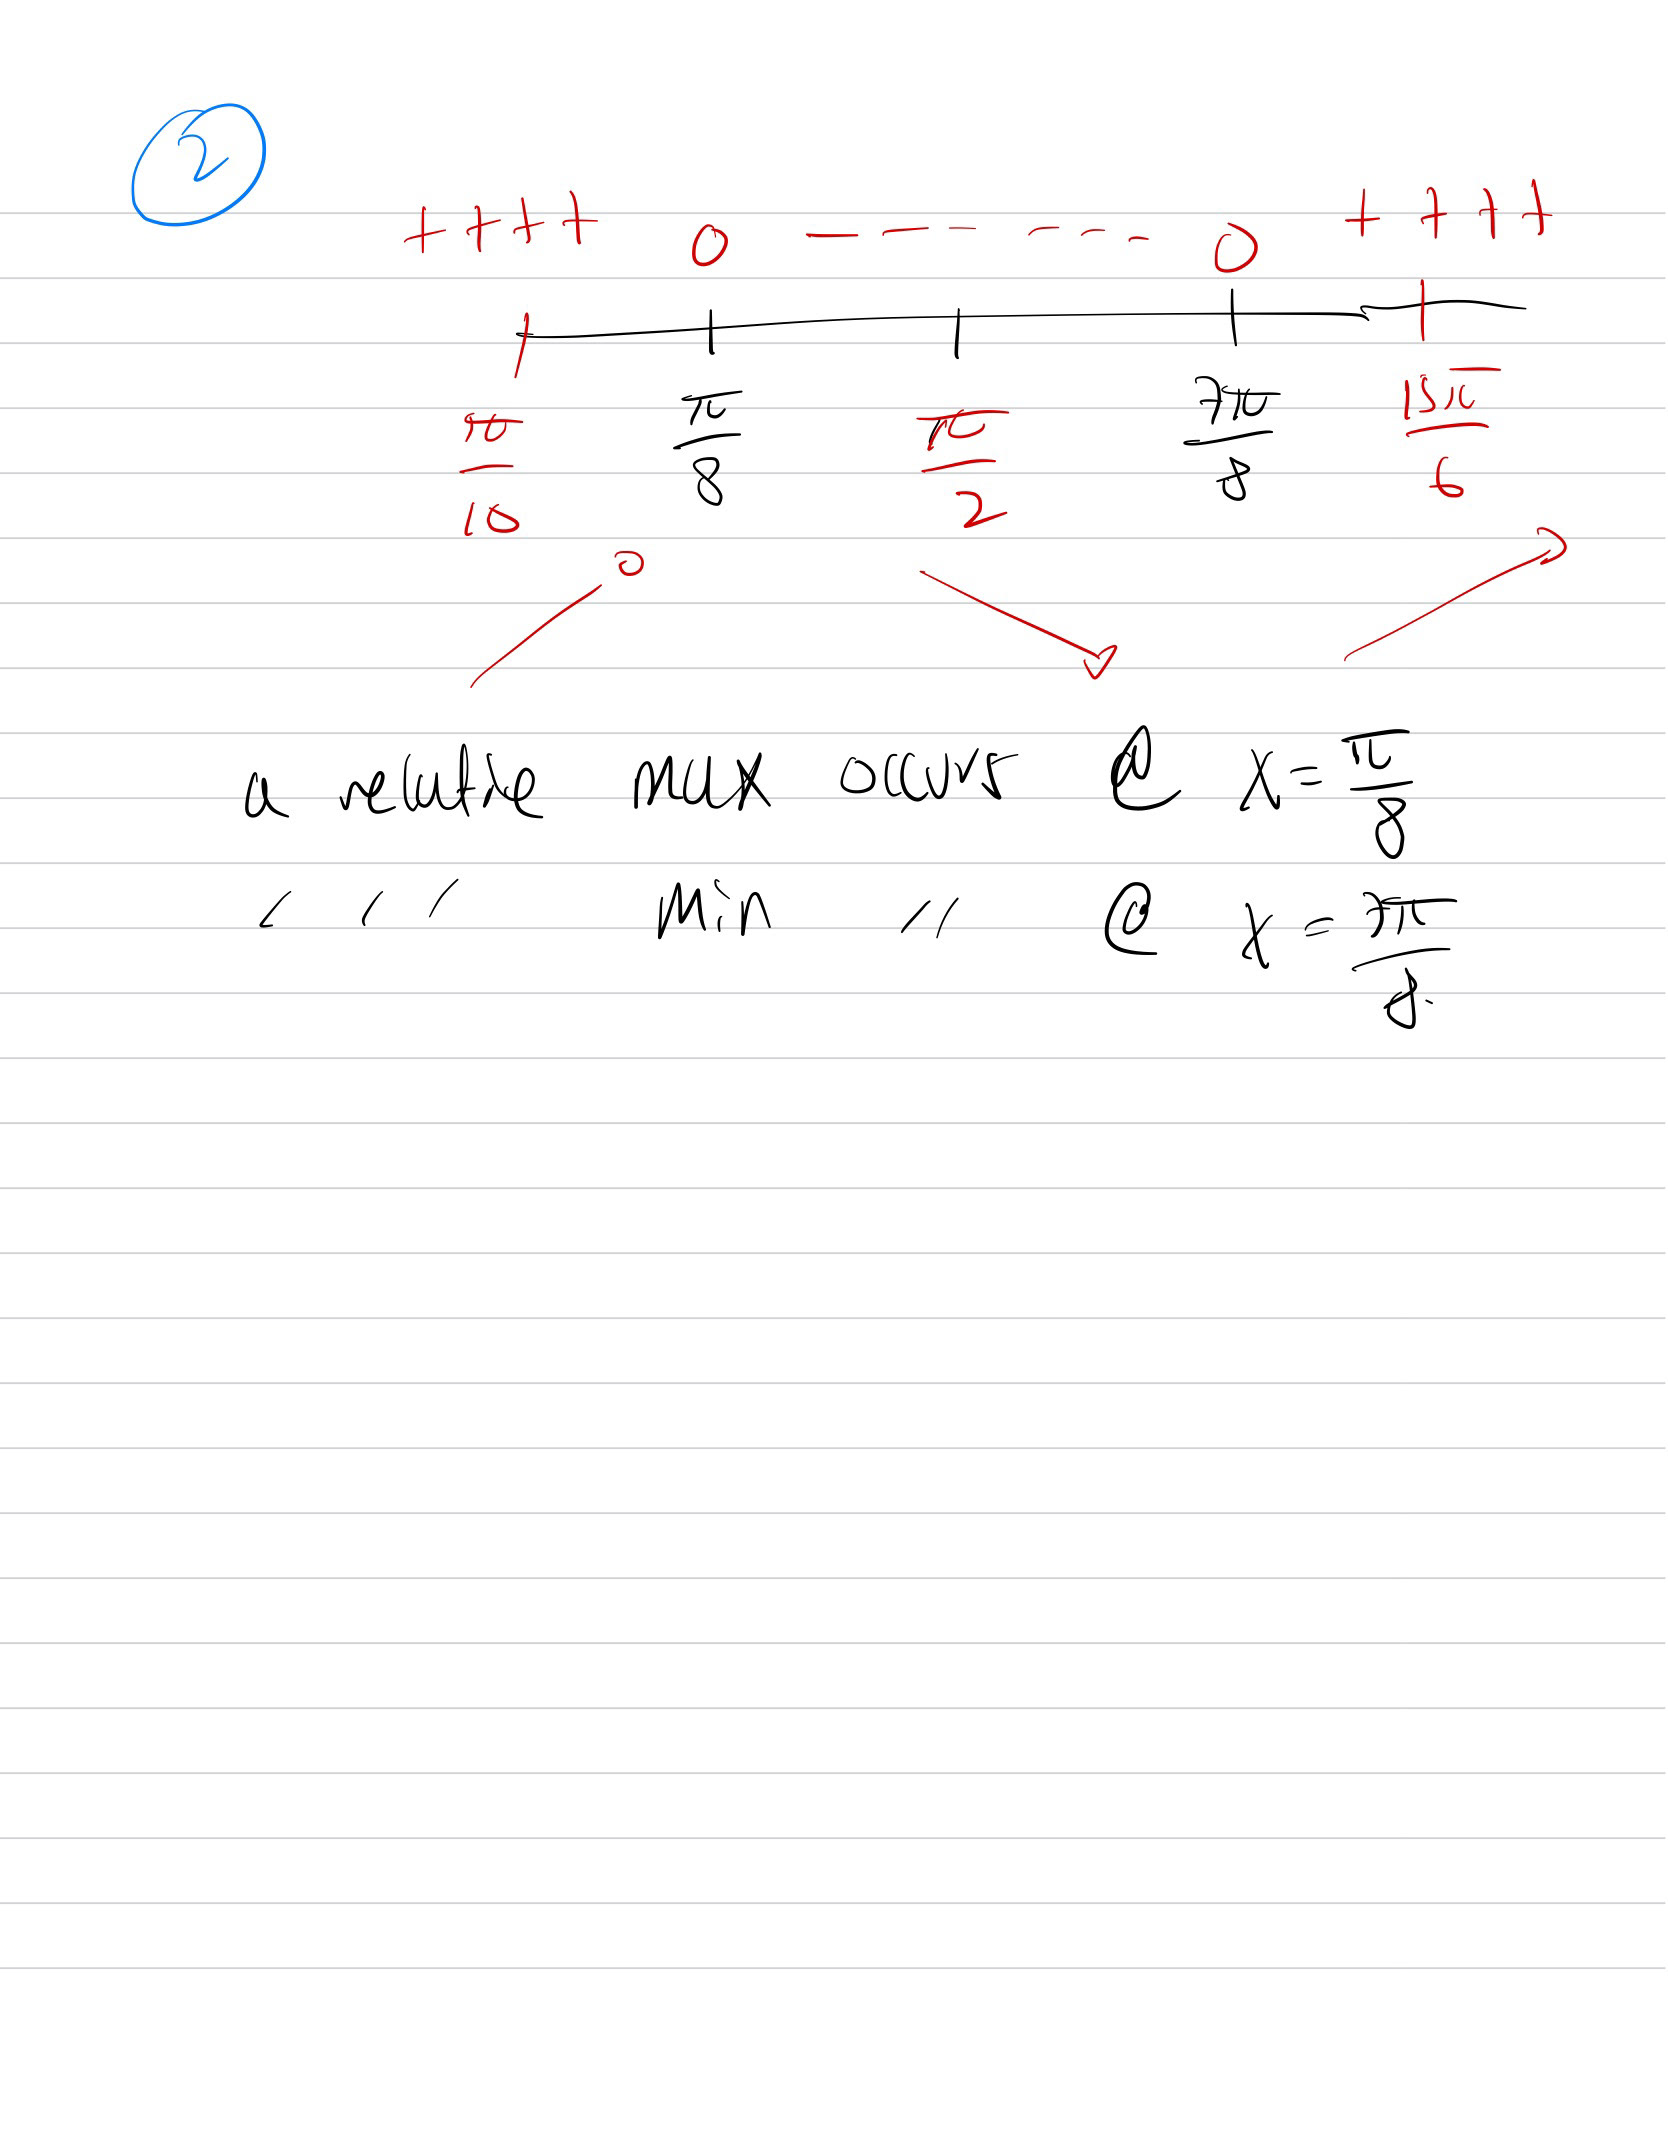 2
++++ 0 - - - - - - 0 ++++
π/10 π/8 π/2 7π/8 15π/6
a relative max occurs @ x = π/8
〃 〃 min 〃 @ x = 7π/8.